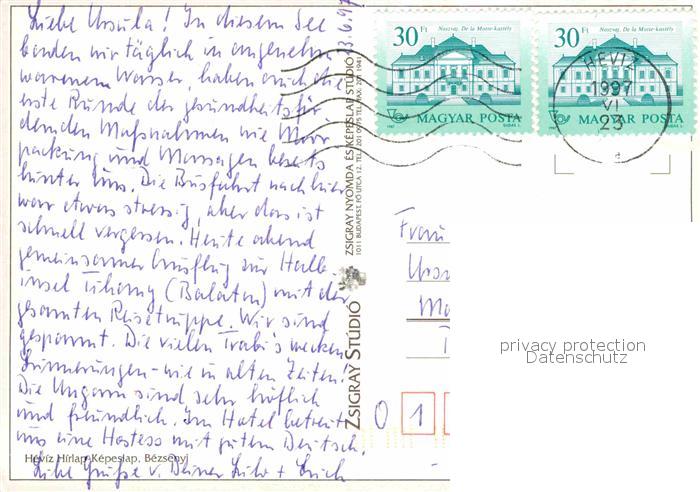 Liebe Ursula! In diesem See
baden wir täglich in angenehm
warmem Wasser, haben auch die
erste Runde der gesundheitsför
dernden Maßnahmen wie Moor
packung und Massagen bereits
hinter uns. Die Busfahrt nach hier
war etwas stressig, aber das ist
schnell vergessen. Heute abend
gemeinsamer Ausflug zur Halb-
insel Tihany (Balaton) mit der
gesamten Reisetruppe. Wir sind
gespannt. Die vielen Trabi's wecken
Erinnerungen - wie in alten Zeiten!
Die Ungarn sind sehr höflich
und freundlich. Im Hotel betreut
uns eine Hostess mit gutem Deutsch.
Liebe Grüße v. Deiner + Erich
23.6.97
Hévíz Hírlap-Képeslap, Bézsenyi
ZSIGRAY STÚDIÓ
ZSIGRAY NYOMDA ÉS KÉPESLAP STÚDIÓ
1011 BUDAPEST, FŐ UTCA 12. TEL.: 201 0975 TEL./FAX: 201 1941
30 Ft
Noszvaj, De la Motte-kastély
MAGYAR POSTA
30 Ft
Noszvaj, De la Motte-kastély
MAGYAR POSTA
HÉVÍZ
1997
VI
23
a
Frau
0 1
privacy protection
Datenschutz